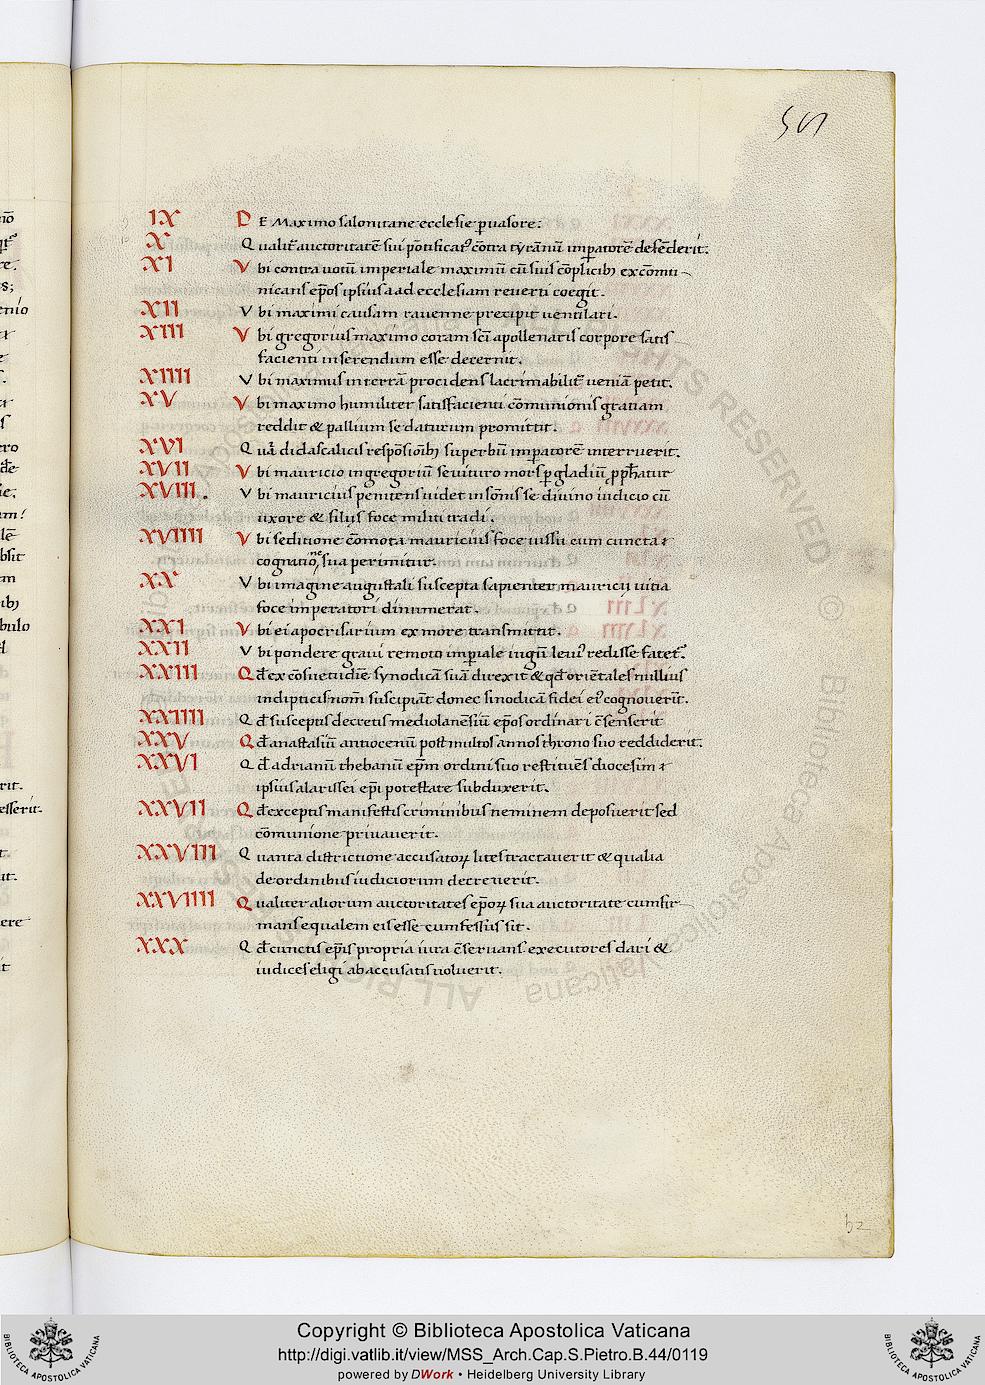 IX DE Maximo salonitane ecclesie p̱uasore.
X Qualit̃ auctoritatẽ sui põtificat᷒ cõtra tyrãnũ imp̱atorẽ defẽderit.
XI Vbi contra uotũ imperiale maximũ cũ suis cõplicib; excõmu-
nicans ep̃os ipsius ad ecclesiam reuerti coegit.
XII Vbi maximi causam rauenne precipit uentilari.
XIII Vbi gregorius maximo coram sc̃i apollenaris corpore satis-
facienti inserendum esse decernit.
XIIII Vbi maximus in terrã procidens lacrimabilit̃ ueniã petit.
XV Vbi maximo humiliter satisfacienti cõmunionis gratiam
reddit & pallium se daturum promittit.
XVI Quã didascalicis respõsiõib; superbũ imp̱atorẽ interruerit.
XVII Vbi mauricio in gregoriũ seuituro mors p̱ gladiũ ꝓph̃atur
XVIII. Vbi mauricius penitens uidet in sõnis se diuino iudicio cũ
uxore & filijs foce militi tradi.
XVIIII Vbi seditione cõmota mauricius foce iussu cum cuncta
cognatione sua perimitur.
XX Vbi imagine augustali suscepta sapienter mauricij uitia
foce imperatori dinumerat.
XXI Vbi ei apocrisarium ex more transmittit.
XXII Vbi pondere graui remoto imp̱iale iugũ leui᷒ redisse fatet᷒.
XXIII Qđ ex cõsuetudĩe synodicã suã direxit & qđ oriẽtales nullius
in dipticis nom̃ suscipiãt donec sinodicã fidei ei᷒ cognouerĩt.
XXIIII Qđ susceptis decretis mediolanẽsiũ ep̃os ordinari cẽsenserit
XXV Qđ anastasiũ antiocenũ post multos annos throno suo reddiderit.
XXVI Qđ adrianũ thebanũ ep̃m ordini suo restituẽs diocesim
ipsius a larissei ep̃i potestate subduxerit.
XXVII Qđ exceptis manifestis criminibus neminem deposuerit sed
cõmunione priuauerit.
XXVIII Quanta districtione accusatoꝝ lites tractauerit & qualia
de ordinibus iudiciorum decreuerit.
XXVIIII Qualiter aliorum auctoritates ep̃oꝝ sua auctoritate cumfir-
mans equalem eis esse cumfessus sit.
XXX Qđ cunctis ep̃is propria iura cẽseruans executores dari &
iudices eligi ab accusatis uoluerit.
b2
© Biblioteca Apostolica Vaticana
ALL RIGHTS RESERVED
Copyright © Biblioteca Apostolica Vaticana
http://digi.vatlib.it/view/MSS_Arch.Cap.S.Pietro.B.44/0119
powered by DWork • Heidelberg University Library
BIBLIOTECA APOSTOLICA VATICANA
BIBLIOTECA APOSTOLICA VATICANA